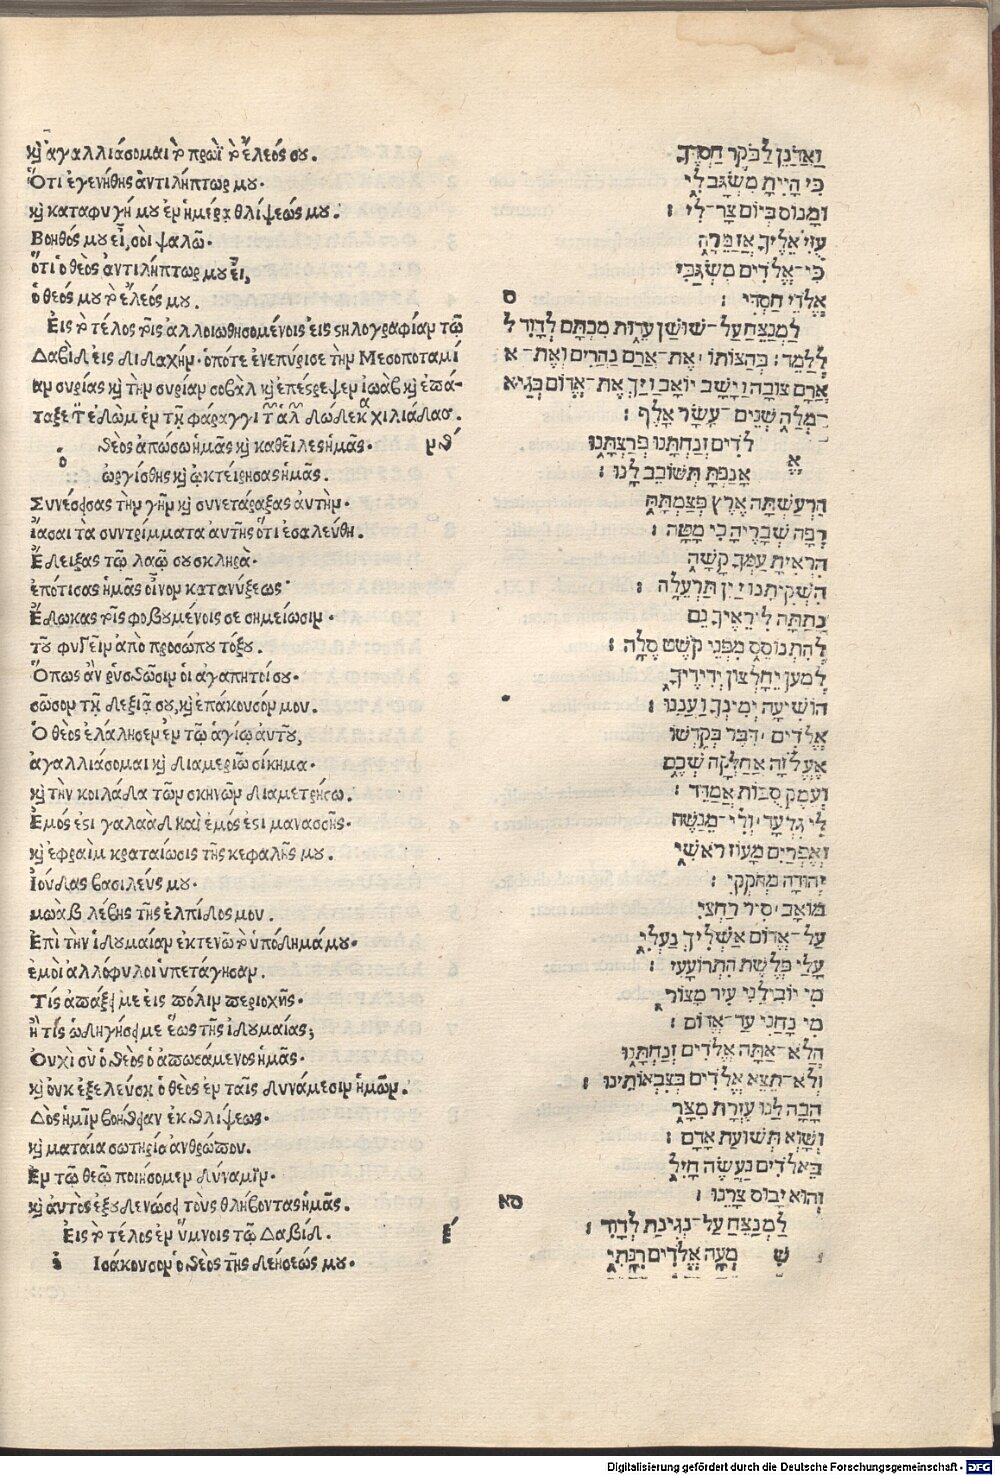 καὶ ἀγαλλιάσομαι τὸ πρωῒ τὸ ἔλεός σου.
Ὅτι ἐγενήθης ἀντιλήπτωρ μου.
καὶ καταφυγή μου ἐν ἡμέρᾳ θλίψεώς μου.
Βοηθός μου εἶ, σοὶ ψαλῶ.
ὅτι ὁ θεὸς ἀντιλήπτωρ μου εἶ,
ὁ θεός μου τὸ ἔλεός μου.
Εἰς τὸ τέλος τοῖς ἀλλοιωθησομένοις εἰς στηλογραφίαν τῷ
Δαβὶδ εἰς διδαχήν. ὁπότε ἐνεπύρισε τὴν Μεσοποταμί
αν συρίας καὶ τὴν συρίαν σοβὰλ καὶ ἐπέστρεψεν ἰωὰβ καὶ ἐπά-
ταξε τὸν ἐδὼμ ἐν τῇ φάραγγι τῶν ἁλῶν δώδεκα χιλιάδας.
ὁ θεὸς ἀπώσω ἡμᾶς καὶ καθεῖλες ἡμᾶς.
ὠργίσθης καὶ ᾠκτείρησας ἡμᾶς.
Συνέσεισας τὴν γῆν καὶ συνετάραξας αὐτὴν.
ἴασαι τὰ συντρίμματα αὐτῆς ὅτι ἐσαλεύθη.
Ἔδειξας τῷ λαῷ σου σκληρὰ.
ἐπότισας ἡμᾶς οἶνον κατανύξεως.
Ἔδωκας τοῖς φοβουμένοις σε σημείωσιν.
τοῦ φυγεῖν ἀπὸ προσώπου τόξου.
Ὅπως ἂν ῥυσθῶσιν οἱ ἀγαπητοί σου.
σῶσον τῇ δεξιᾷ σου, καὶ ἐπάκουσόν μου.
Ὁ θεὸς ἐλάλησεν ἐν τῷ ἁγίῳ αὐτοῦ,
ἀγαλλιάσομαι καὶ διαμεριῶ σίκημα.
καὶ τὴν κοιλάδα τῶν σκηνῶν διαμετρήσω.
Ἐμός ἐστι γαλαὰδ καὶ ἐμός ἐστι μανασσῆς.
καὶ ἐφραὶμ κραταίωσις τῆς κεφαλῆς μου.
Ἰούδας βασιλεύς μου.
μωὰβ λέβης τῆς ἐλπίδος μου.
Ἐπὶ τὴν ἰδουμαίαν ἐκτενῶ τὸ ὑπόδημά μου.
ἐμοὶ ἀλλόφυλοι ὑπετάγησαν.
Τίς ἀπάξει με εἰς πόλιν περιοχῆς.
ἢ τίς ὡδήγησέ με ἕως τῆς ἰδουμαίας;
Οὐχὶ σὺ ὁ θεὸς ὁ ἀπωσάμενος ἡμᾶς.
καὶ οὐκ ἐξελεύσῃ ὁ θεὸς ἐν ταῖς δυνάμεσιν ἡμῶν.
Δὸς ἡμῖν βοήθειαν ἐκ θλίψεως.
καὶ ματαία σωτηρία ἀνθρώπου.
Ἐν τῷ θεῷ ποιήσομεν δύναμιν.
καὶ αὐτὸς ἐξουδενώσει τοὺς θλίβοντας ἡμᾶς.
Εἰς τὸ τέλος ἐν ὕμνοις τῷ Δαβίδ. ξ
Εἰσάκουσον ὁ θεὸς τῆς δεήσεώς μου.
וַאֲרַנֵּן לַבֹּקֶר חַסְדֶּךָ
כִּי הָיִיתָ מִשְׂגָּב לִי
וּמָנוֹס בְּיוֹם צַר־לִי :
עֻזִּי אֵלֶיךָ אֲזַמֵּרָה
כִּי־אֱלֹדִים מִשְׂגַּבִּי
אֱלֹדֵי חַסְדִּי : ס
לַמְנַצֵּחַ עַל־שׁוּשַׁן עֵדוּת מִכְתָּם לְדָוִד ל
לְלַמֵּד : בְּהַצּוֹתוֹ אֶת־אֲרַם נַהֲרַיִם וְאֶת־א
אֲרַם צוֹבָה וַיָּשָׁב יוֹאָב וַיַּךְ אֶת־אֱדוֹם בְּגֵיא
־מֶלַח שְׁנֵים־עָשָׂר אָלֶף :
אֱלֹדִים זְנַחְתָּנוּ פְרַצְתָּנוּ
אָנַפְתָּ תְּשׁוֹבֵב לָנוּ :
הִרְעַשְׁתָּה אֶרֶץ פְּצַמְתָּהּ
רְפָה שְׁבָרֶיהָ כִי מָטָה :
הִרְאִיתָ עַמְּךָ קָשָׁה
הִשְׁקִיתָנוּ יַיִן תַּרְעֵלָה :
נָתַתָּה לִּירֵאֶיךָ נֵּס
לְהִתְנוֹסֵס מִפְּנֵי קֹשֶׁט סֶלָה :
לְמַעַן יֵחָלְצוּן יְדִידֶיךָ
הוֹשִׁיעָה יְמִינְךָ וַעֲנֵנוּ :
אֱלֹדִים דִּבֶּר בְּקָדְשׁוֹ
אֶעְלֹזָה אֲחַלְּקָה שְׁכֶם
וְעֵמֶק סֻכּוֹת אֲמַדֵּד :
לִי גִלְעָד וְלִי־מְנַשֶּׁה
וְאֶפְרַיִם מָעוֹז רֹאשִׁי
יְהוּדָה מְחֹקְקִי :
מוֹאָב סִיר רַחְצִי
עַל־אֱדוֹם אַשְׁלִיךְ נַעֲלִי
עָלַי פְּלֶשֶׁת הִתְרוֹעָעִי :
מִי יוֹבִלֵנִי עִיר מָצוֹר
מִי נָחַנִי עַד־אֱדוֹם :
הֲלֹא־אַתָּה אֱלֹדִים זְנַחְתָּנוּ
וְלֹא־תֵצֵא אֱלֹדִים בְּצִבְאוֹתֵינוּ :
הָבָה לָּנוּ עֶזְרָת מִצָּר
וְשָׁוְא תְּשׁוּעַת אָדָם :
בֵּאלֹדִים נַעֲשֶׂה חָיִל
וְהוּא יָבוּס צָרֵנוּ : סא
לַמְנַצֵּחַ עַל־נְגִינַת לְדָוִד :
שִׁמְעָה אֱלֹדִים רִנָּתִי
Digitalisierung gefördert durch die Deutsche Forschungsgemeinschaft - DFG